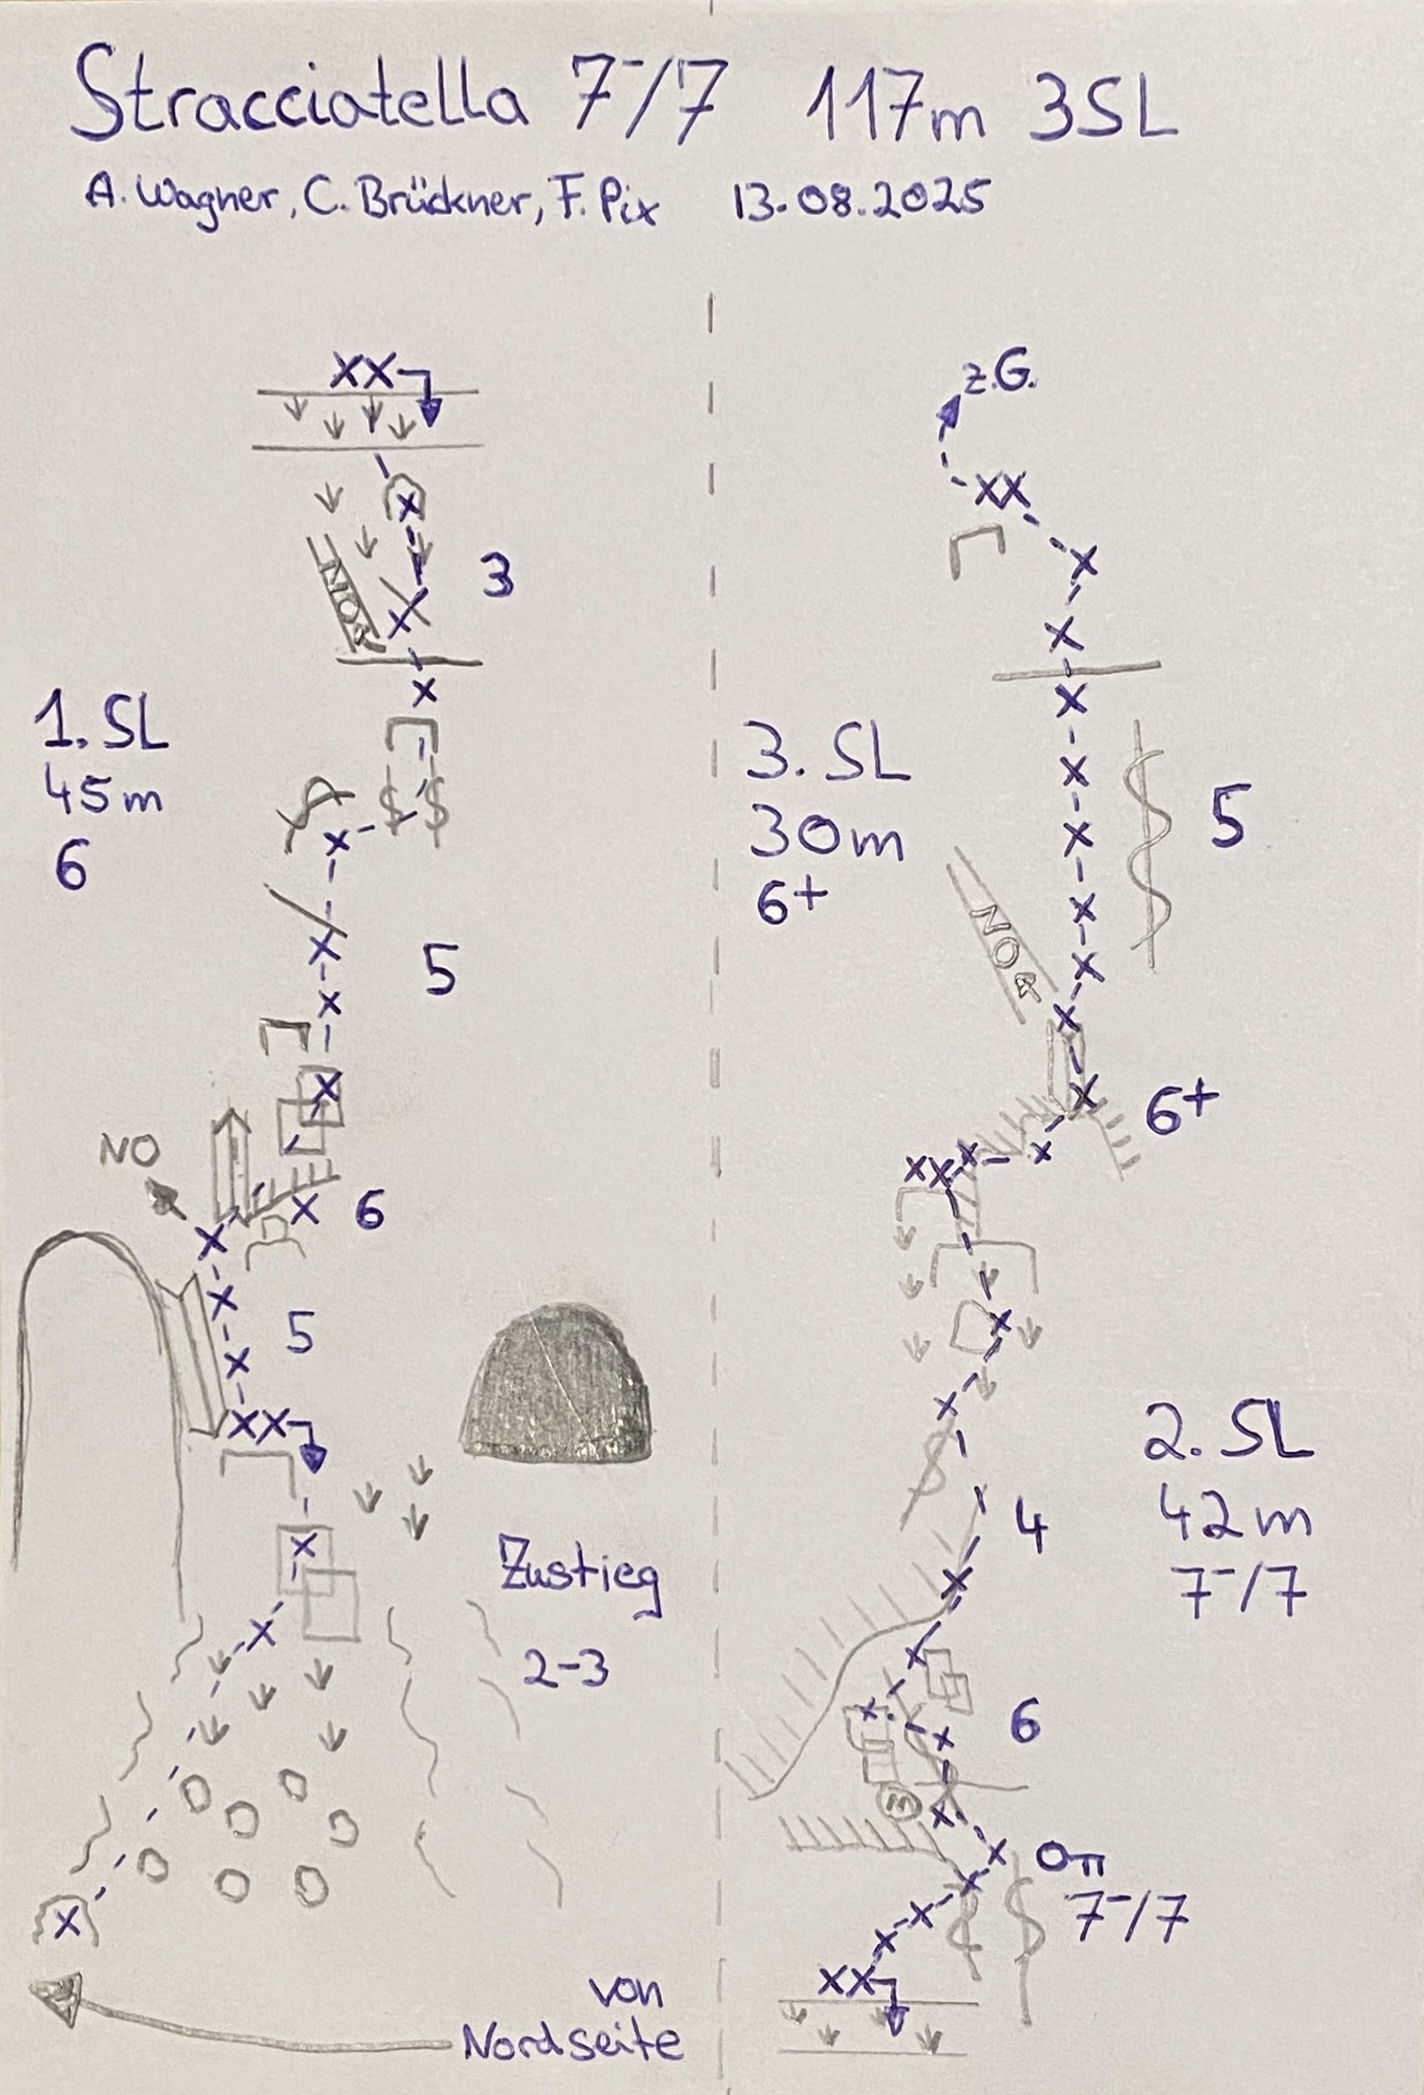 Stracciatella 7-/7 117m 3SL
A. Wagner, C. Brückner, F. Pix 13.08.2025
3
NO
1. SL
45m
6
5
NO
6
5
Zustieg
2-3
von
Nordseite
z.G.
3. SL
30m
6+
5
NO
6+
2. SL
42m
7-/7
4
6
7-/7